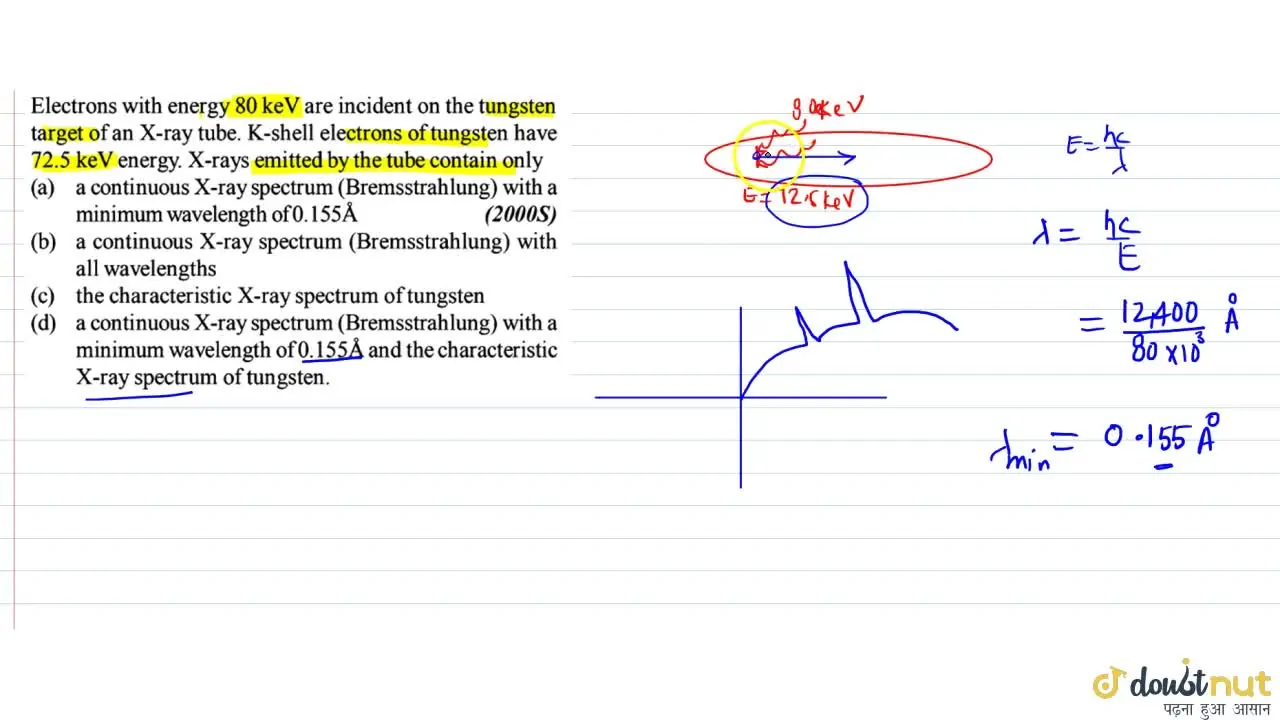 Electrons with energy 80 keV are incident on the tungsten
target of an X-ray tube. K-shell electrons of tungsten have
72.5 keV energy. X-rays emitted by the tube contain only
(a) a continuous X-ray spectrum (Bremsstrahlung) with a
minimum wavelength of 0.155Å (2000S)
(b) a continuous X-ray spectrum (Bremsstrahlung) with
all wavelengths
(c) the characteristic X-ray spectrum of tungsten
(d) a continuous X-ray spectrum (Bremsstrahlung) with a
minimum wavelength of 0.155Å and the characteristic
X-ray spectrum of tungsten.
keV
E = 12.5 keV
E = hc/λ
λ = hc/E
= 12,400/80×10³ Å
λmin = 0.155 Å
doubtnut
पढ़ना हुआ आसान